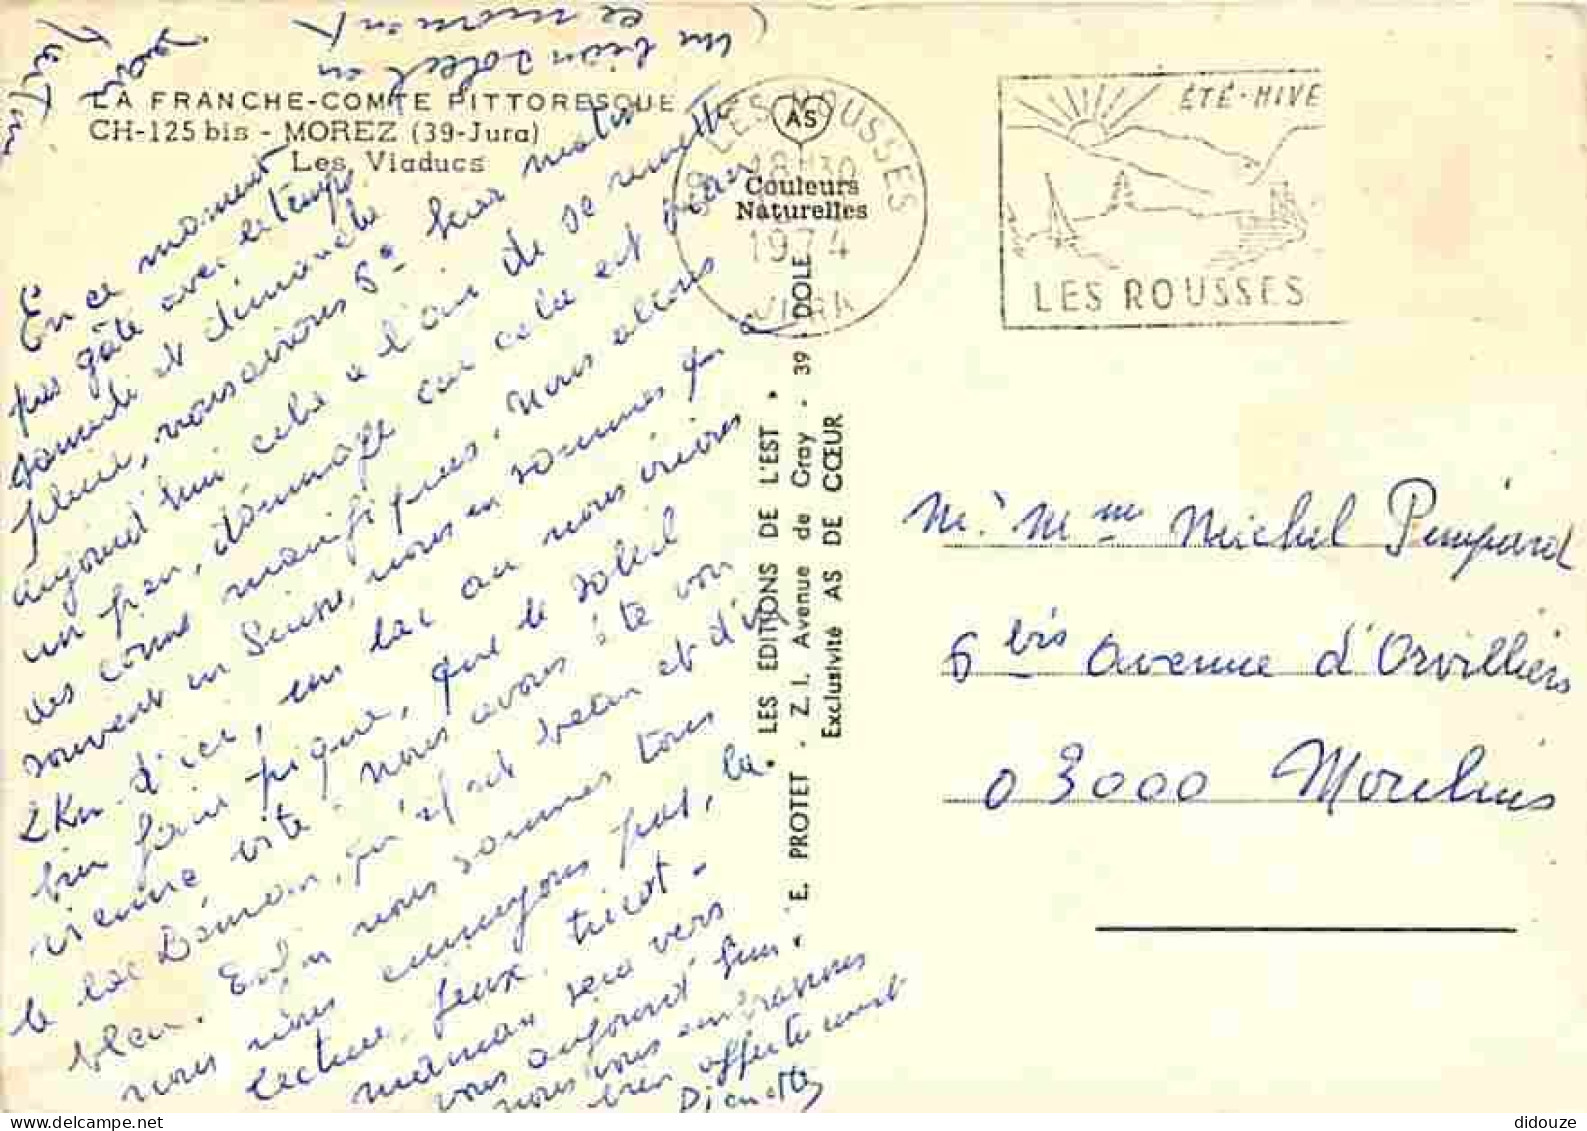 LA FRANCHE-COMTE PITTORESQUE
CH-125 bis - MOREZ (39-Jura)
Les Viaducs
un bien soleil en
ce moment
En ce moment
pas gâté avec le temps
samedi et dimanche
pluie, nous avions 6° hier matin
aujourd'hui cela a l'air de se remettre
un peu, dommage car cela est
des coins magnifiques, nous allons
souvent en Suisse, nous en sommes qu'a
2 Km d'ici,
bien pique, que le soleil
vienne vite nous avons été voir
le lac Léman, qu'il est beau et
bleu. Enfin nous sommes tous
nous n'ous ennuyons pas, la
lecture, jeux, tricot -
maman sera vers
vous aujourd'hui.
nous vous embrassons
bien affectueusement
AS
Couleurs
Naturelles
LES ROUSSES
18H30
1974
JURA
ÉTÉ-HIVE
LES ROUSSES
LES EDITIONS DE L'EST •
E. PROTET - Z. I. Avenue de Gray - 39 DOLE
Exclusivité AS DE CŒUR
M. Mme Michel
6 bis avenue d'Orvilliers
03000 Moulins
didouze